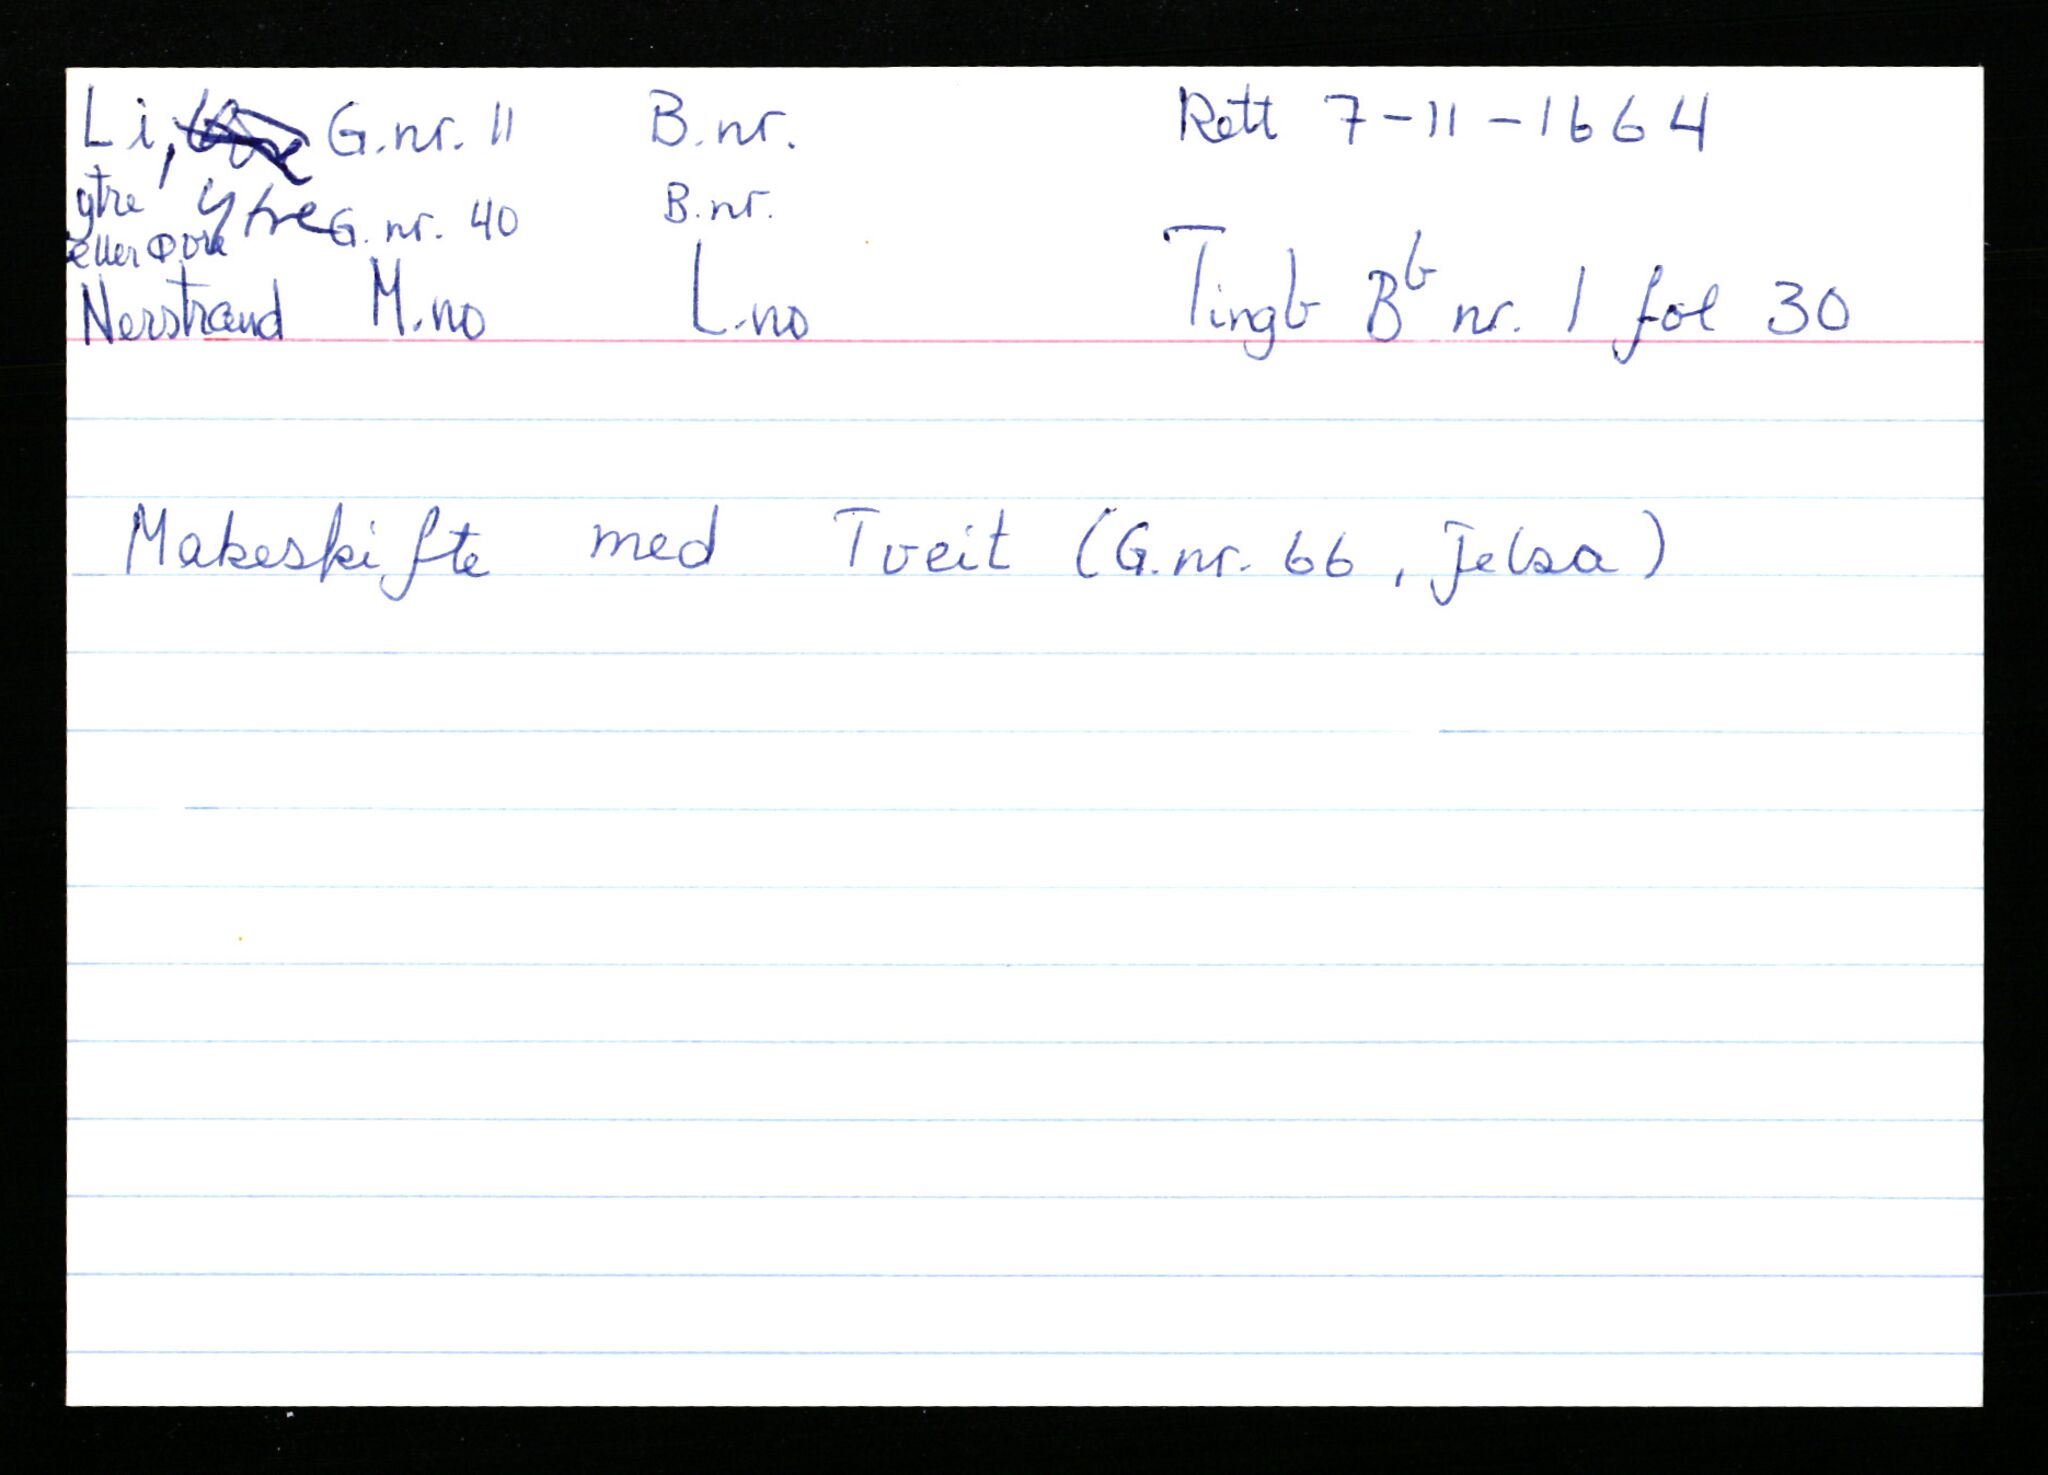 Li, G.nr. 11 B.nr. Rett 7-11-1664
ytre ytre G.nr. 40 B.nr.
eller Øvre
Nerstrand M.no L.no Tingb Bb nr. 1 fol 30
Makeskifte med Tveit (G.nr. 66, Jelsa)